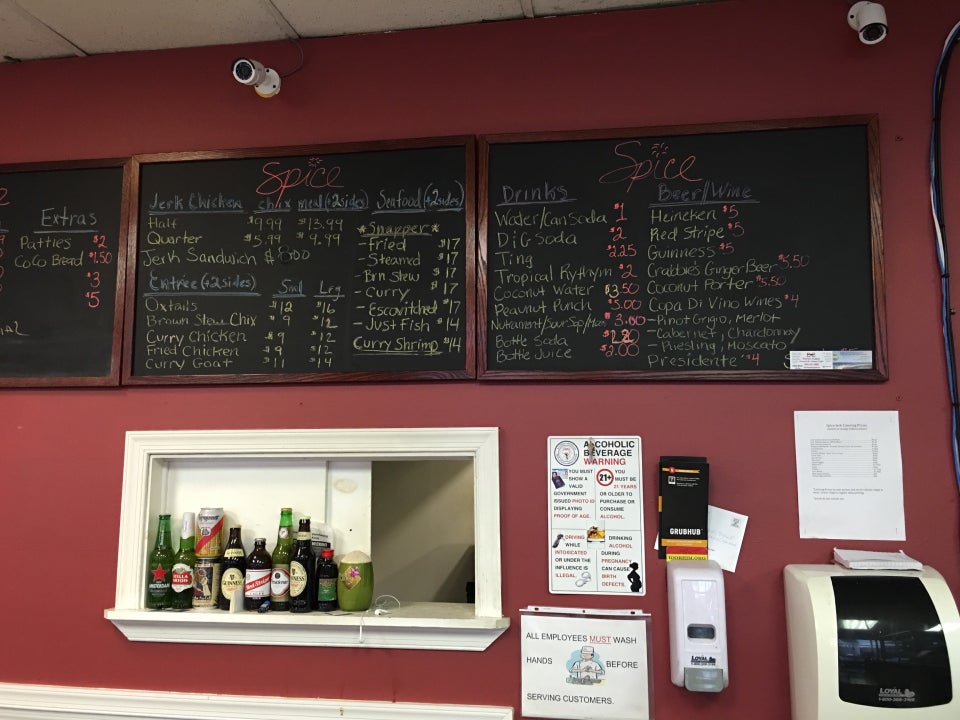 Extras
Patties $2
CoCo Bread $1.50
$3
$5
Spice
Jerk Chicken chix meal (+2 sides)
Half $9.99 $13.99
Quarter $5.99 $9.99
Jerk Sandwich $8.00
Entrée (+2 sides) Sml Lrg
Oxtails $12 $16
Brown Stew Chix $9 $12
Curry Chicken $9 $12
Fried Chicken $9 $12
Curry Goat $11 $14
Seafood (+2 sides)
*Snapper*
-Fried $17
-Steamed $17
-Brn Stew $17
-Curry $17
-Escovitched $17
-Just Fish $14
Curry Shrimp $14
Spice
Drinks
Water/Can Soda $1
DiG Soda $2
Ting $2.25
Tropical Rythym $2
Coconut Water $3.50
Peaunut Punch $3.00
Bottle Soda
Bottle Juice $2.00
Beer/Wine
Heineken $5
Red Stripe $5
Guinness $5
Crabbie's Ginger Beer $5.50
Coconut Porter $5.50
Copa Di Vino Wines $4
-Pinot Grigio, Merlot
-Cabernet, Chardonnay
-Riesling, Moscato
Presidente $4
GUINNESS
Red Stripe
ALCOHOLIC
BEVERAGE
WARNING
YOU MUST
SHOW A
VALID
GOVERNMENT
ISSUED PHOTO ID
DISPLAYING
PROOF OF AGE.
21+
YOU MUST
BE
21 YEARS
OR OLDER TO
PURCHASE OR
CONSUME
ALCOHOL.
DRIVING
WHILE
INTOXICATED
OR UNDER THE
INFLUENCE IS
ILLEGAL.
DRINKING
ALCOHOL
DURING
PREGNANCY
CAN CAUSE
BIRTH
DEFECTS.
GRUBHUB
ALL EMPLOYEES MUST WASH
HANDS BEFORE
SERVING CUSTOMERS.
LOYAL
LOYAL